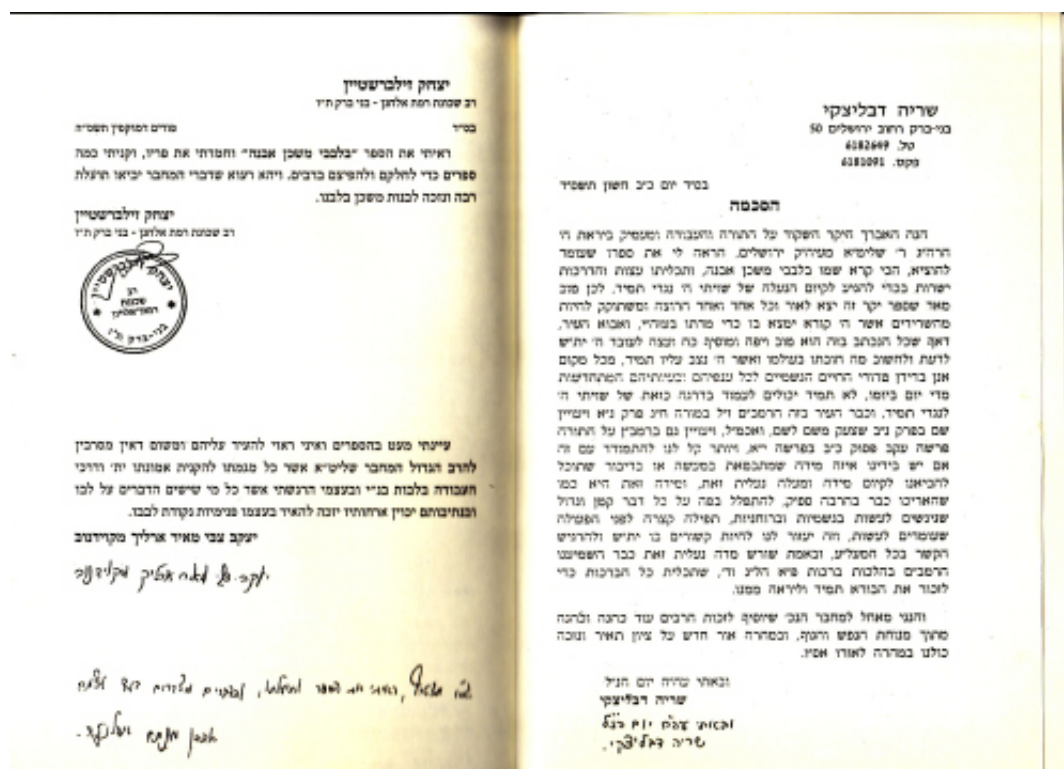 שריה דבליצקי
בני-ברק רחוב ירושלים 50
טל. 6182649
פקס. 6181091
בס״ד יום כ״ב חשון תשס״ד
הסכמה
הנה האברך היקר השקוד על התורה והעבודה ומעסיק ביראת ה׳
הרה״ג ר׳ שליט״א מעיה״ק ירושלים, הראה לי את ספרו שעומד
להוציא, הכי קרא שמו בלבבי משכן אבנה, ותכליתו עצות והדרכות
ישרות בכדי להגיע לקיום הנעלה של שויתי ה׳ נגדי תמיד. לכן טוב
מאד שספר יקר זה יצא לאור וכל אחד ואחד הרוצה ומשתוקק להיות
מהשרידים אשר ה׳ קורא ימצא בו כדי מדתו בעזהי״, ואבוא העיר,
דאף שכל הנכתב בזה הוא טוב ויפה ומוסיף כח ועצה לעובד ה׳ ית״ש
לדעת ולחשוב מה חובתו בעולמו ואשר ה׳ נצב עליו תמיד, מכל מקום
אנן בדידן טרודי החיים הגשמיים לכל ענפיהם ובעיותיהם המתחדשות
מדי יום ביומו, לא תמיד יכולים לעמוד בדרגה כזאת של שויתי ה׳
לנגדי תמיד, וכבר העיר בזה הרמב״ם ז״ל במורה ח״ג פרק נ״א ויעויין
שם בפרק נ״ב שצעק משם לשם, ואכמ״ל, ויעויין גם ברמב״ן על התורה
פרשה עקב פסוק כ״ב בפרשה י״א, ויותר קל לנו להתמודד עם זה
אם יש בידינו איזה מידה שמתבטאת במעשה או בדיבור שתוכל
להביאנו לקיום מידה ומעלה נעלית זאת, ומידה זאת היא כמו
שהאריכו כבר בהרבה ספרים, להתפלל בפה על כל דבר קטן וגדול
שניגשים לעשות בגשמיות וברוחניות, תפילה קצרה לפני הפעולה
שעומדים לעשות, וזה יעזור לנו להיות קשורים בו ית״ש ולהרגיש
הקשר בכל המעל״ע, ובאמת שורש מדה נעלית זאת כבר השמיענו
הרמב״ם בהלכות ברכות פ״א הל״ג וד׳, שתכלית כל הברכות כדי
לזכור את הבורא תמיד וליראה ממנו.
והנני מאחל למחבר הנכ׳ שיוסיף לזכות הרבים עוד כהנה וכהנה
מתוך מנוחת הנפש והגוף, ובמהרה אור חדש על ציון תאיר ונזכה
כולנו במהרה לאורו אס״ו.
ובאתי עה״ח יום הנ״ל
שריה דבליצקי
ובאתי עה״ח יום הנ״ל
שריה דבליצקי.
יצחק זילברשטיין
רב שכונת רמת אלחנן - בני ברק ת״ו
בס״ד
ראיתי את הספר ״בלבבי משכן אבנה״ וחמדתי את פריו, וקניתי כמה
ספרים כדי לחלקם ולהפיצם ברבים. ויהא רעוא שדברי המחבר יביאו תועלת
רבה ונזכה לבנות משכן בלבנו.
יצחק זילברשטיין
רב שכונת רמת אלחנן - בני ברק ת״ו
עיינתי מעט בהספרים ואיני ראוי להעיד עליהם ומשום דאין מסרבין
להרב הגדול המחבר שליט״א אשר כל מגמתו להקנית אמונתו ית׳ ודרכי
העבודה בלבות בנ״י ובעצמי הרגשתי אשר כל מי שישים הדברים על לבו
ובנתיבותם יכוין ארחותיו יזכה להאיר בעצמו פנימיות נקודת לבבו.
יעקב צבי מאיר ארליך מקוידנוב